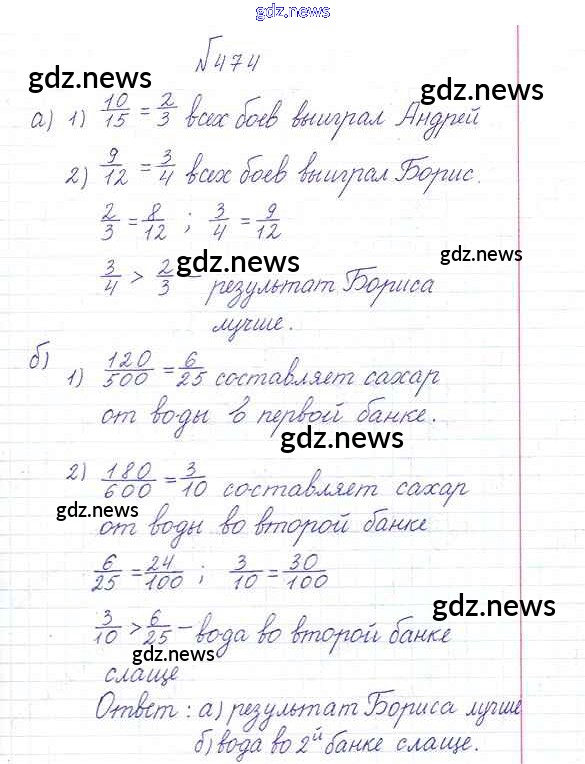 gdz.news
№474
gdz.news
gdz.news
а) 1) 10/15 = 2/3 всех боев выиграл Андрей
2) 9/12 = 3/4 всех боев выиграл Борис.
2/3 = 8/12 ; 3/4 = 9/12
gdz.news
gdz.news
3/4 > 2/3 – результат Бориса
лучше.
б) 1) 120/500 = 6/25 составляет сахар
от воды в первой банке.
gdz.news
2) 180/600 = 3/10 составляет сахар
gdz.news
от воды во второй банке
6/25 = 24/100 ; 3/10 = 30/100
gdz.news
3/10 > 6/25 – вода во второй банке
gdz.news
слаще
Ответ : а) результат Бориса лучше
б) вода во 2й банке слаще.